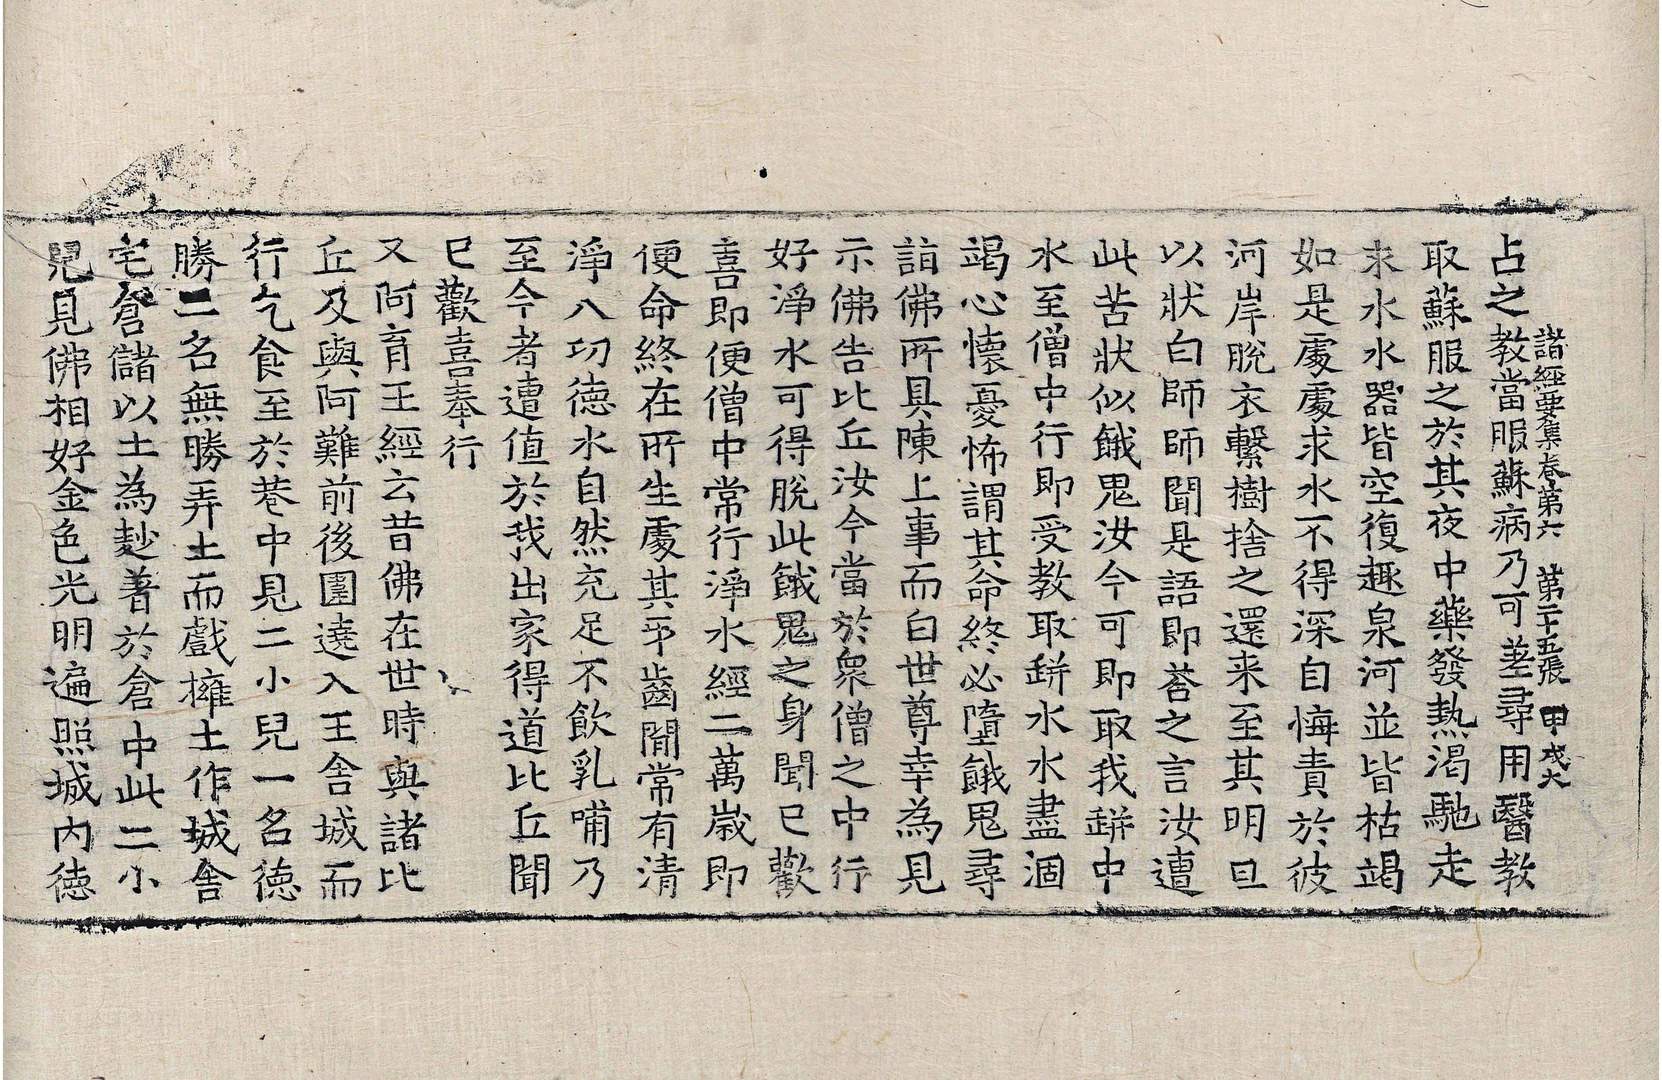 諸經要集卷第六　第二十五張　甲戌六
占之教當服蘇病乃可差尋用醫教
取蘇服之於其夜中藥發熱渴馳走
求水水器皆空復趣泉河並皆枯竭
如是處處求水不得深自悔責於彼
河岸脫衣繫樹捨之還来至其明旦
以狀白師師聞是語即荅之言汝遭
此苦狀似餓鬼汝今可即取我缾中
水至僧中行即受教取缾水水盡涸
竭心懷憂怖謂其命終必墮餓鬼尋
詣佛所具陳上事而白世尊幸為見
示佛告比丘汝今當於衆僧之中行
好淨水可得脫此餓鬼之身聞已歡
喜即便僧中常行淨水經二萬歲即
便命終在所生處其牙齒閒常有清
淨八功德水自然充足不飲乳哺乃
至今者遭值於我出家得道比丘聞
已歡喜奉行
又阿育王經云昔佛在世時與諸比
丘及與阿難前後圍遶入王舍城而
行乞食至於巷中見二小兒一名德
勝二名無勝弄土而戲擁土作城舍
宅倉儲以土為麨著於倉中此二小
兒見佛相好金色光明遍照城內德